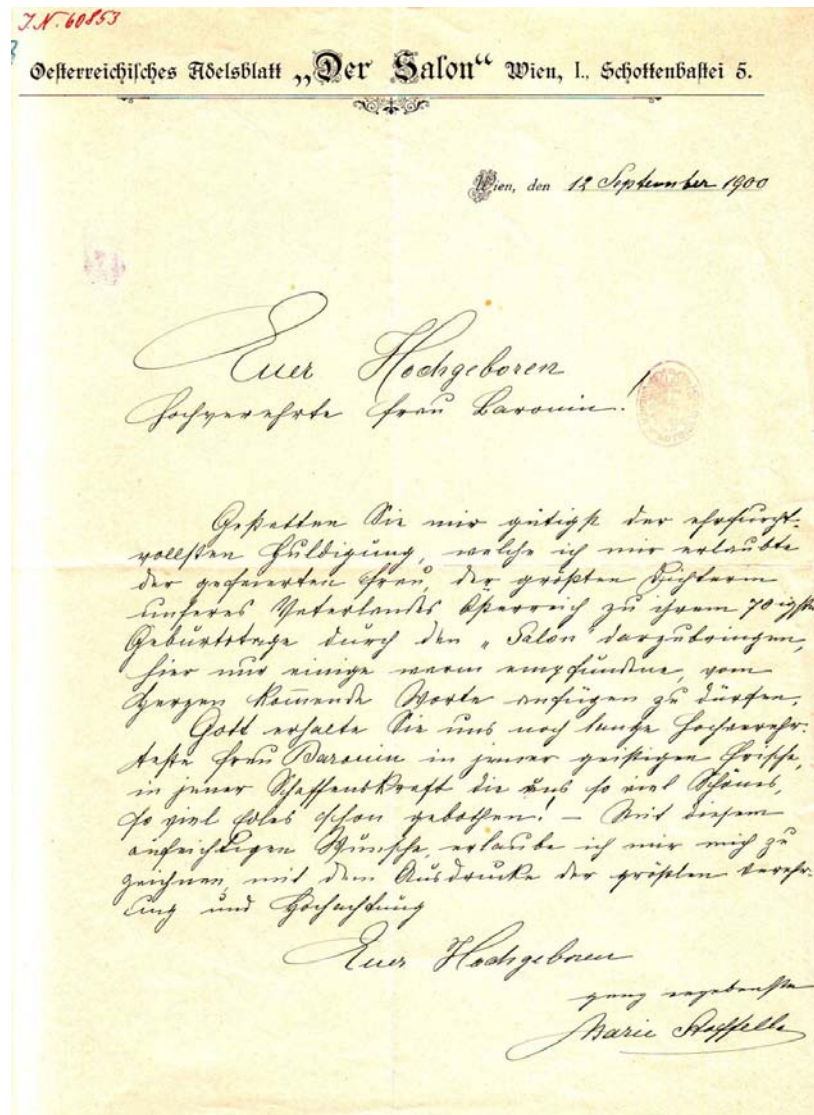 J.N. 60853
Oesterreichisches Adelsblatt „Der Salon“ Wien, I., Schottenbastei 5.
Wien, den 12 September 1900
Euer Hochgeboren
Hochverehrte Frau Baronin!
Gestatten Sie mir gütigst der ehrfurcht-
vollsten Huldigung, welche ich mir erlaubte
der gefeierten Frau, der größten Dichterin
unseres Vaterlandes Österreich zu ihrem 70igsten
Geburtstage durch den „Salon“ darzubringen,
hier nur einige warm empfundene, vom
Herzen kommende Worte anfügen zu dürfen.
Gott erhalte Sie uns noch lange hochverehr-
teste Frau Baronin in jener geistigen Frische,
in jener Schaffenskraft die uns so viel Schönes,
so viel Edles schon gebothen! – Mit diesem
aufrichtigen Wunsche, erlaube ich mir mich zu
zeichnen, mit dem Ausdrucke der größten Verehr-
ung und Hochachtung
Euer Hochgeboren
ganz ergebenste
Marie